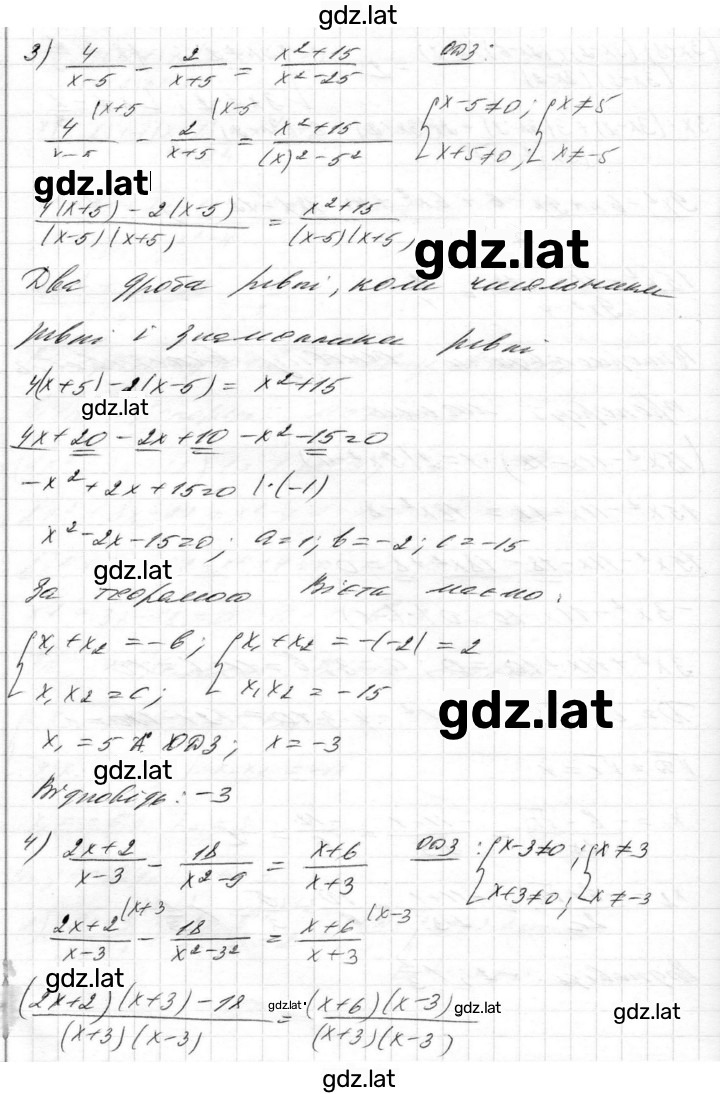 gdz.lat
3) 4/(x-5) - 2/(x+5) = (x²+15)/(x²-25) ОДЗ:
4/(x-5) |x+5 - 2/(x+5) |x-5 = (x²+15)/((x)²-5²) {x-5≠0; x+5≠0; {x≠5 x≠-5
gdz.lat
(4(x+5) - 2(x-5))/((x-5)(x+5)) = (x²+15)/((x-5)(x+5))
gdz.lat
Два дроба рівні, коли чисельники
рівні і знаменники рівні
4(x+5) - 2(x-5) = x²+15
gdz.lat
4x+20-2x+10-x²-15=0
-x²+2x+15=0 |·(-1)
x²-2x-15=0; a=1; b=-2; c=-15
gdz.lat
За теоремою Вієта маємо:
{x₁+x₂=-b; x₁x₂=c; {x₁+x₂=-(-2)=2 x₁x₂=-15
gdz.lat
x₁=5 ∉ ОДЗ; x=-3
gdz.lat
Відповідь: -3
4) (2x+2)/(x-3) - 18/(x²-9) = (x+6)/(x+3) ОДЗ: {x-3≠0; x+3≠0; {x≠3 x≠-3
(2x+2)/(x-3) |x+3 - 18/(x²-3²) = (x+6)/(x+3) |x-3
gdz.lat
((2x+2)(x+3)-18)/((x+3)(x-3)) = ((x+6)(x-3))/((x+3)(x-3))
gdz.lat
gdz.lat
gdz.lat
gdz.lat